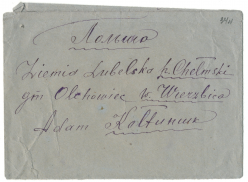 Польша
Ziemia Lubelska p. Chełmski
gm Olchowiec w. Wierzbica
Adam Kołtunuk